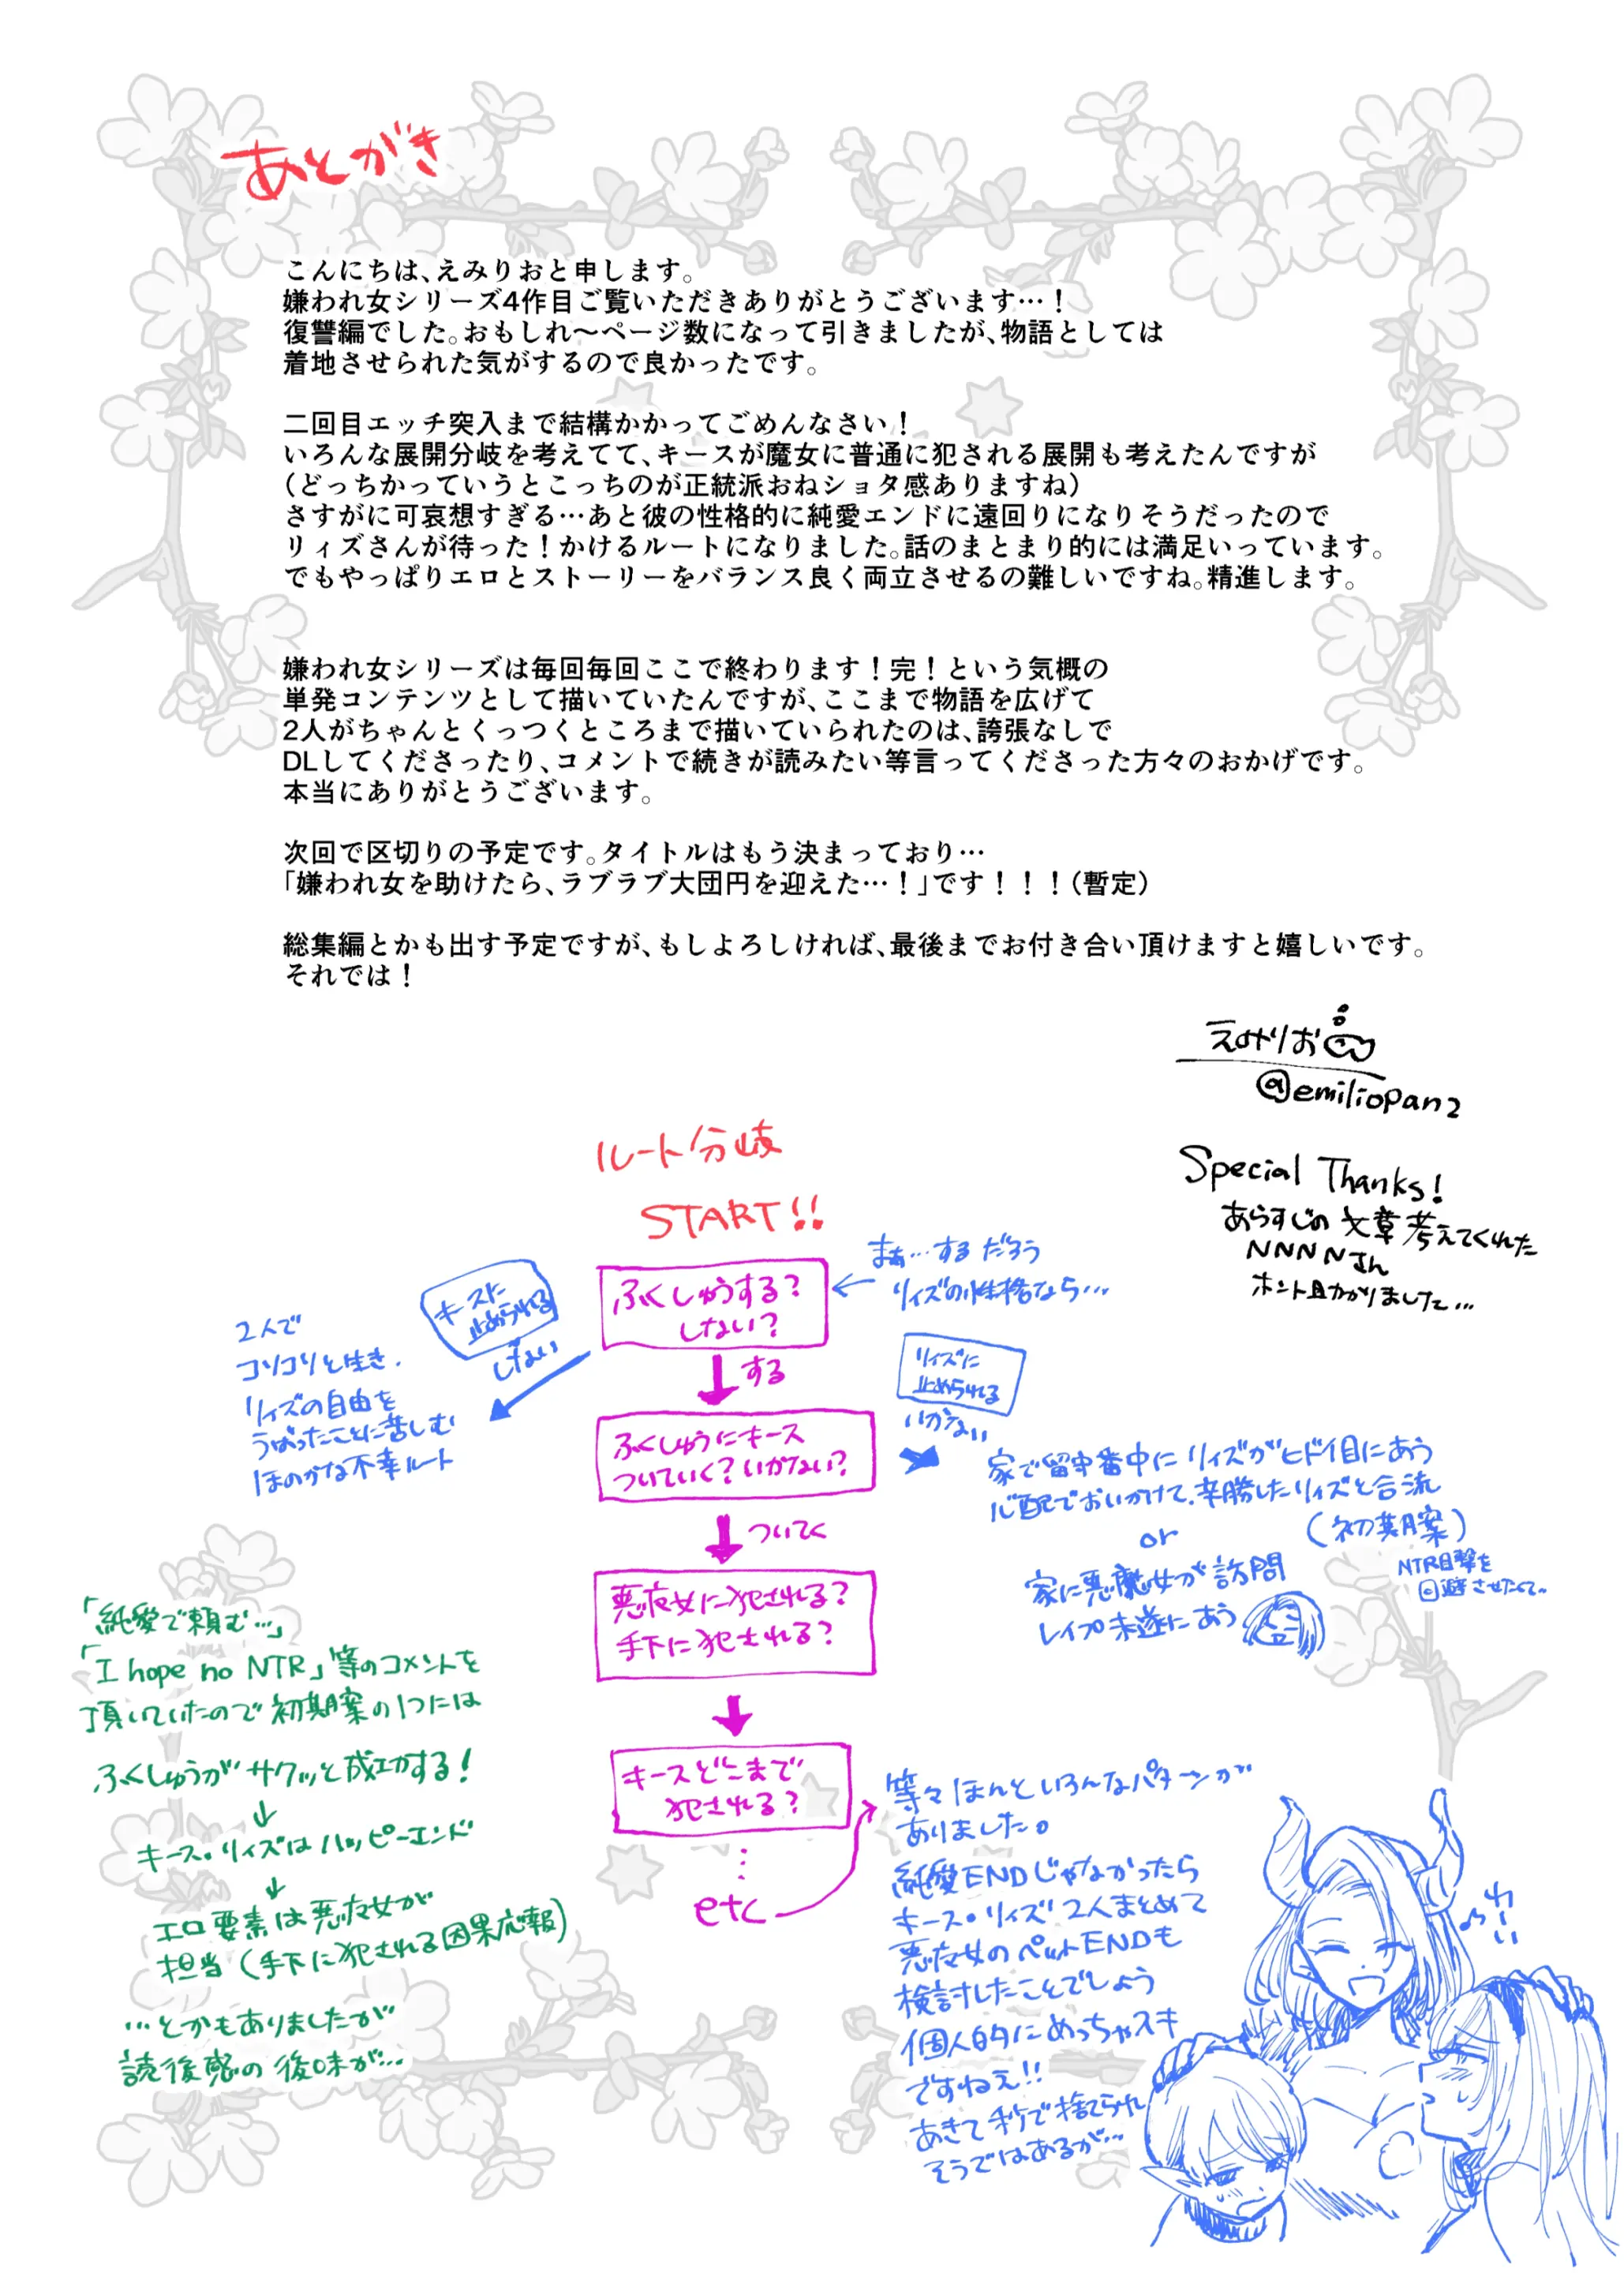 あとがき
こんにちは、えみりおと申します。
嫌われ女シリーズ4作目ご覧いただきありがとうございます…！
復讐編でした。おもしれ～ページ数になって引きましたが、物語としては
着地させられた気がするので良かったです。
二回目エッチ突入まで結構かかってごめんなさい！
いろんな展開分岐を考えてて、キースが魔女に普通に犯される展開も考えたんですが
（どっちかっていうとこっちのが正統派おねショタ感ありますね）
さすがに可哀想すぎる…あと彼の性格的に純愛エンドに遠回りになりそうだったので
リィズさんが待った！かけるルートになりました。話のまとまり的には満足いっています。
でもやっぱりエロとストーリーをバランス良く両立させるの難しいですね。精進します。
嫌われ女シリーズは毎回毎回ここで終わります！完！という気概の
単発コンテンツとして描いていたんですが、ここまで物語を広げて
2人がちゃんとくっつくところまで描いていられたのは、誇張なしで
DLしてくださったり、コメントで続きが読みたい等言ってくださった方々のおかげです。
本当にありがとうございます。
次回で区切りの予定です。タイトルはもう決まっており…
「嫌われ女を助けたら、ラブラブ大団円を迎えた…！」です！！！（暫定）
総集編とかも出す予定ですが、もしよろしければ、最後までお付き合い頂けますと嬉しいです。
それでは！
えみりお
@emiliopan2
Special Thanks!
あらすじの文章考えてくれた
NNNNさん
ホント助かりました…
ルート分岐
START!!
ふくしゅうする?
しない?
まあ…するだろう
リィズの性格なら…
キースに
止められる
しない
2人で
コソコソと生き、
リィズの自由を
うばったことに苦しむ
ほのかな不幸ルート
する
ふくしゅうにキース
ついていく? いかない?
リィズに
止められる
いかない
家で留守番中にリィズがヒドイ目にあう
心配でおいかけて、辛勝したリィズと合流
(初期案)
NTR目撃を
回避させたくて…
or
家に悪魔女が訪問
レイプ未遂にあう
ついてく
悪魔女に犯される?
手下に犯される?
キースどこまで
犯される?
etc
等々ほんといろんなパターンが
ありました。
純愛ENDじゃなかったら
キース・リィズ2人まとめて
悪魔女のペットENDも
検討したことでしょう
個人的にめっちゃスキ
ですねえ!!
あきて秒で捨てられ
そうではあるが…
「純愛で頼む…」
「I hope no NTR」等のコメントを
頂いていたので初期案の1つには
ふくしゅうがサクッと成功する!
キース・リィズはハッピーエンド
エロ要素は悪魔女が
担当(手下に犯される因果応報)
…とかもありましたが
読後感の後味が…
わーい